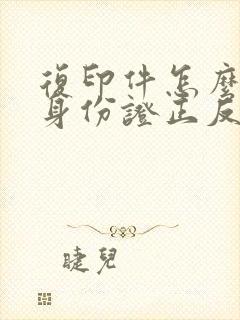 復印件怎麼
身份證正反
睫兒